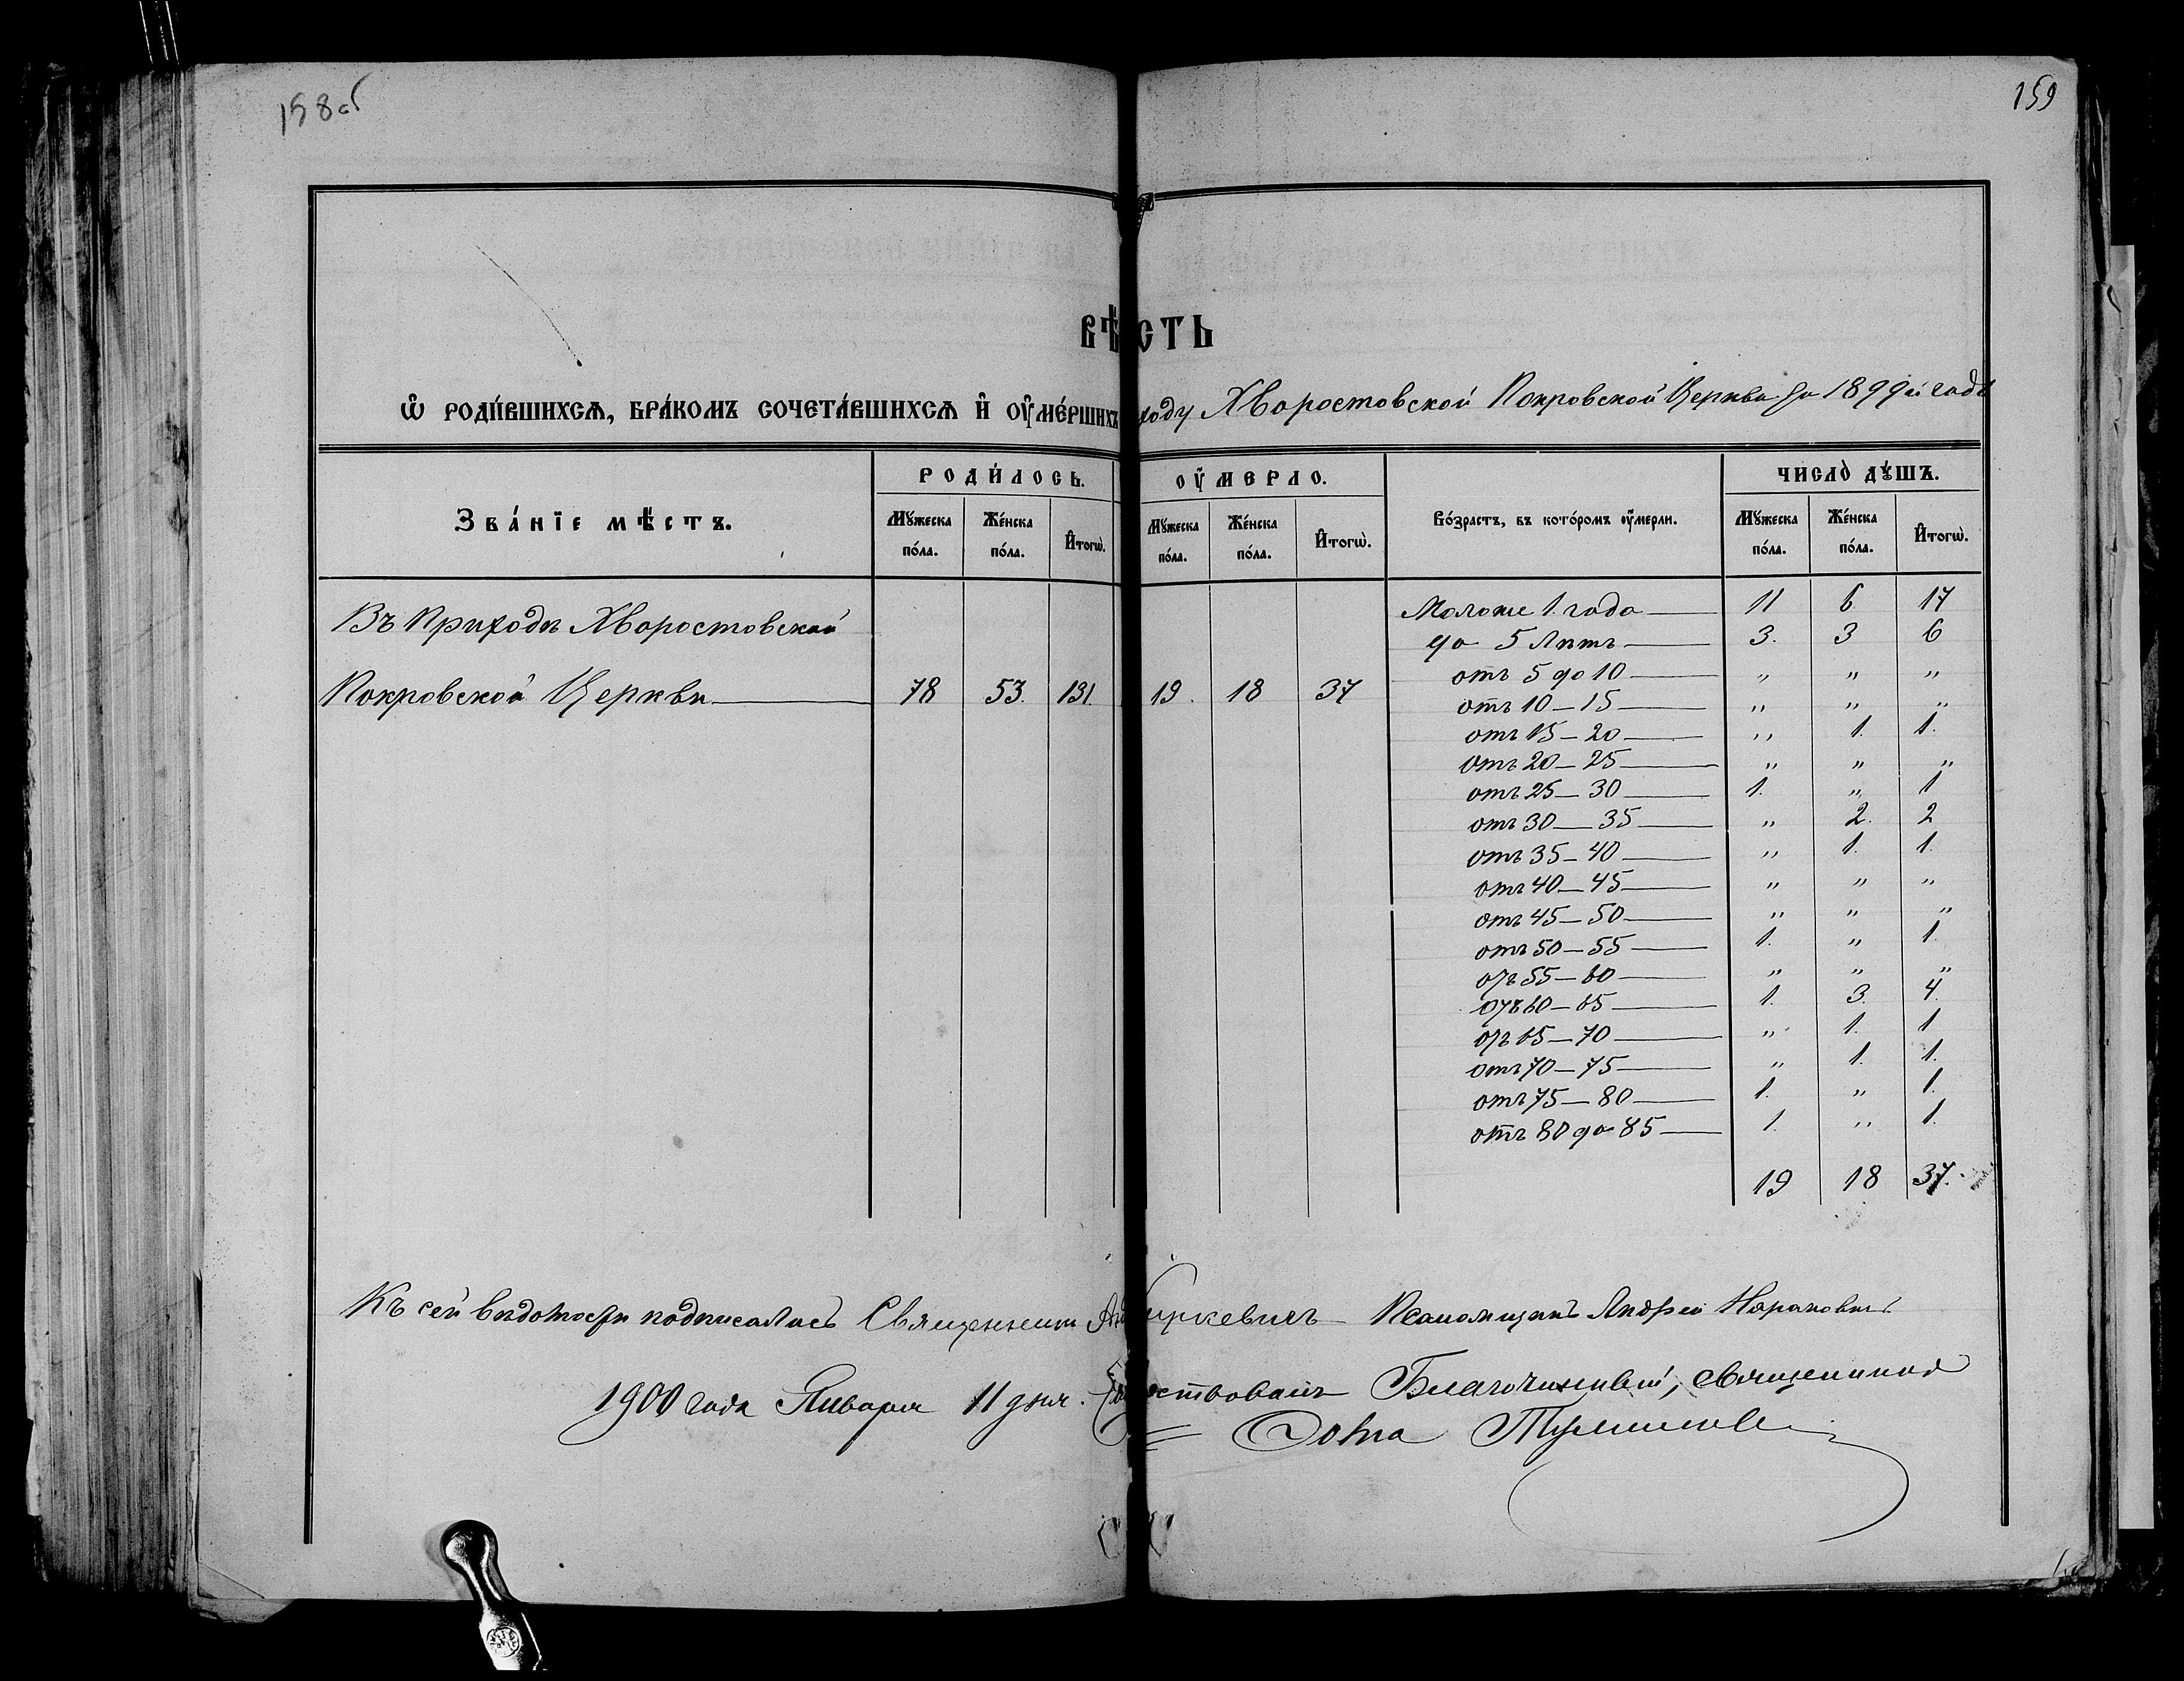 158об
159
вѣсть
Ѡ родившихся, бракомъ сочетавшихся и оумершихъ ходу Хворостовской Покровской Церкви за 1899й годъ
Званїе мѣстъ.
Родилось.
Оумерло.
Возрастъ, въ которомъ оумерли.
Число душъ.
Мужеска пола.
Женска пола.
Итогѡ.
Мужеска пола.
Женска пола.
Итогѡ.
Мужеска пола.
Женска пола.
Итогѡ.
Въ Приходѣ Хворостовской
Покровской Церкви 78 53. 131. 19. 18 37
Моложе 1. года 11 6 17
до 5 Лѣтъ 3. 3 6
отъ 5 до 10 „ „ „
отъ 10 — 15 „ „ „
отъ 15 — 20 „ 1. 1.
отъ 20 — 25 „ „ „
отъ 25 — 30 1. „ 1
отъ 30 — 35 „ 2. 2
отъ 35 — 40 „ 1. 1.
отъ 40 — 45 „ „ „
отъ 45 — 50 „ „ „
отъ 50 — 55 1. „ 1.
отъ 55 — 60 „ „ „
отъ 60 — 65 1. 3. 4.
отъ 65 — 70 „ 1. 1
отъ 70 — 75 „ 1. 1.
отъ 75 — 80 1. „ 1.
отъ 80 до 85 1. „ 1.
19 18 37.
Къ сей вѣдомости подписались Священникъ Псаломщикъ Андрей
1900 года Января 11 дня. Благочинный, священникъ